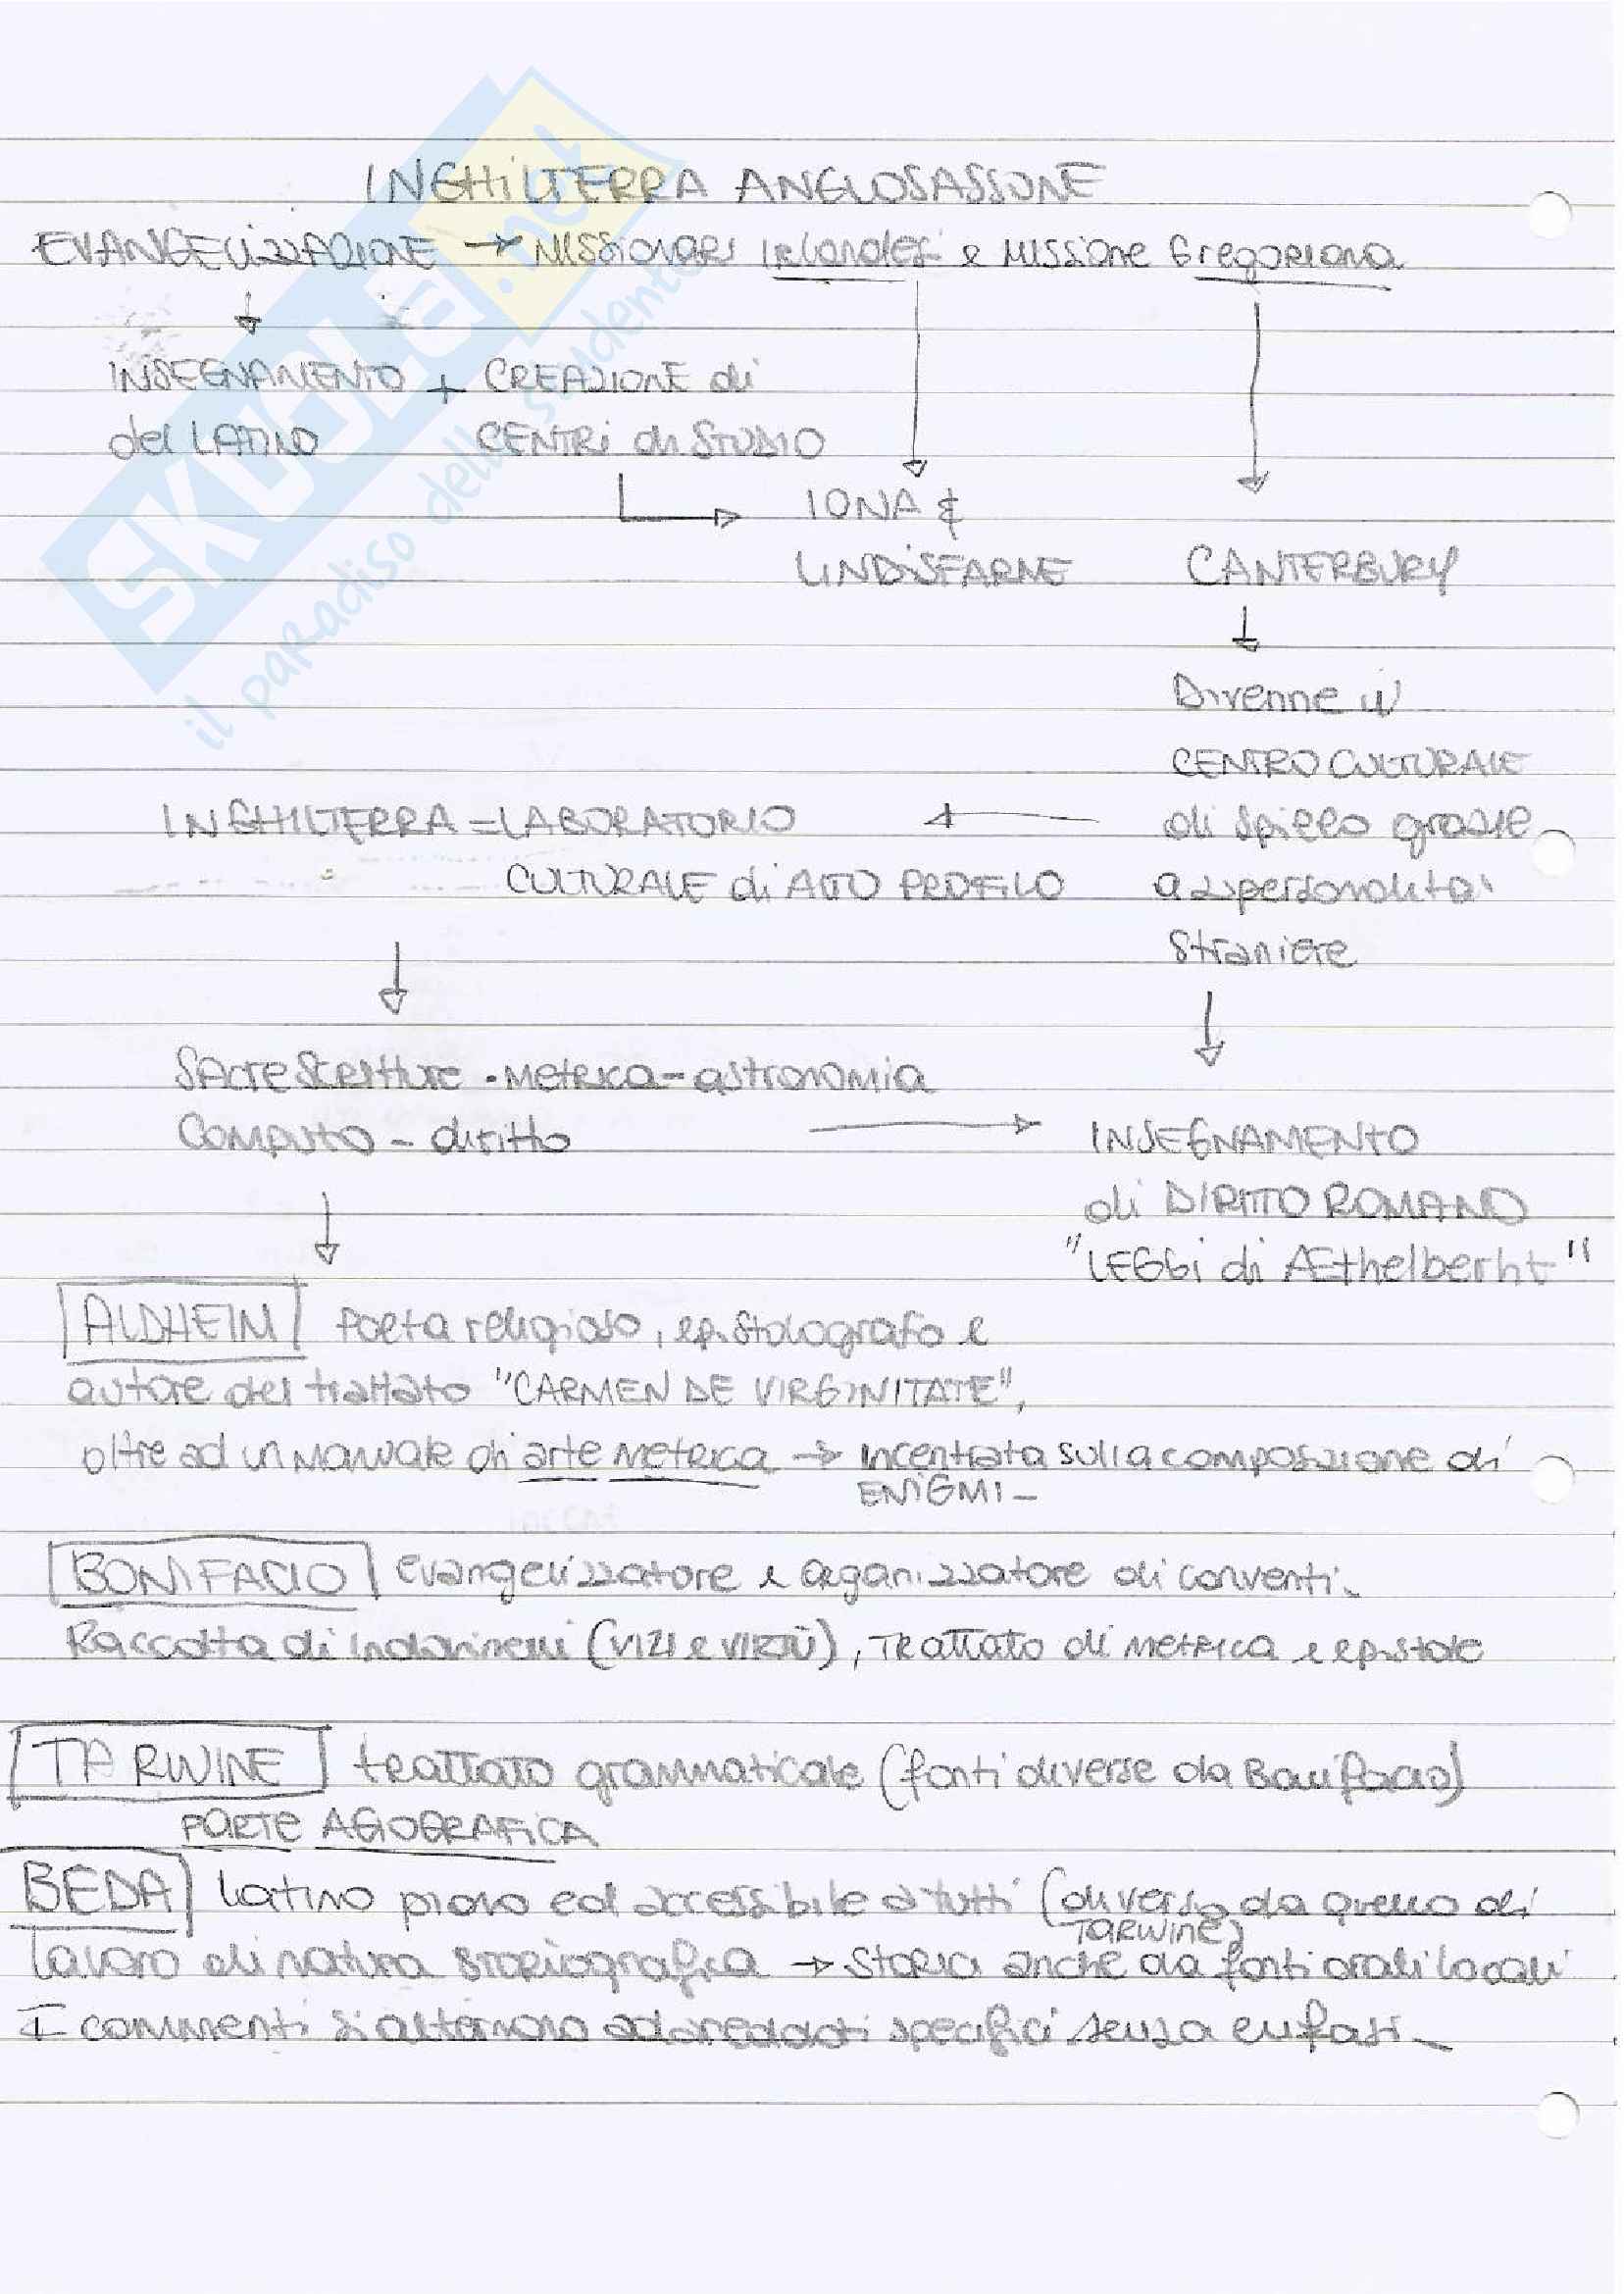 INGHILTERRA ANGLOSASSONE
EVANGELIZZAZIONE → MISSIONARI IRLANDESI e MISSIONE GREGORIANA
INSEGNAMENTO + CREAZIONE di
del LATINO CENTRI di STUDIO
IONA &
LINDISFARNE CANTERBURY
Divenne il
CENTRO CULTURALE
INGHILTERRA = LABORATORIO di spicco grazie
CULTURALE di ALTO PROFILO a 2 personalità
straniere
SACRE SCRITTURE - METRICA - astronomia
COMPUTO - diritto INSEGNAMENTO
di DIRITTO ROMANO
"LEGGI di ÆThelberht"
ALDHEIM Poeta religioso, epistolografo e
autore del trattato "CARMEN DE VIRGINITATE",
oltre ad un manuale di arte metrica → incentrata sulla composizione di
ENIGMI -
BONIFACIO evangelizzatore e organizzatore di conventi.
Raccolta di indovinelli (VIZI e VIRTÙ), TRATTATO di METRICA e epistole
TARWINE trattato grammaticale (fonti diverse da Bonifacio)
PARTE AGIOGRAFICA
BEDA latino piano ed accessibile a tutti (diverso da quello di
TARWINE)
lavoro di natura storiografica → storia anche da fonti orali locali
I commenti si alternano ad aneddoti specifici senza enfasi.
SKUOLA.net
il paradiso dello studente